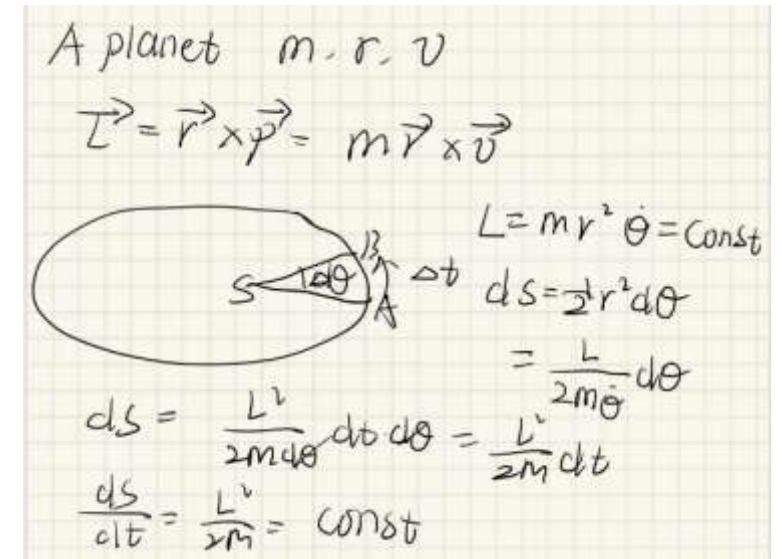 A planet m. r. v
L⃗ = r⃗ × p⃗ = m r⃗ × v⃗
L = m r² θ̇ = const
S dθ B A Δt
ds = ½ r² dθ
= L / (2mθ̇) dθ
ds = L² / (2m dθ) dt dθ = L² / (2m) dt
ds/dt = L² / (2m) = const